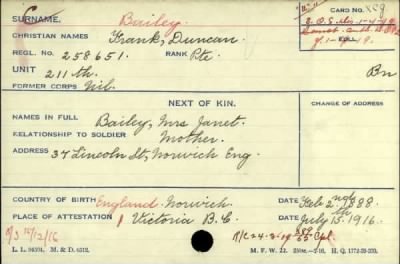 SURNAME. Bailey. CARD NO.
CHRISTIAN NAMES Frank, Duncan. S.O.S. Dis 1-4-19
REGL. NO. 258651. RANK Pte. FOLL.
UNIT 211th. Bn
FORMER CORPS Nil.
NEXT OF KIN. CHANGE OF ADDRESS
NAMES IN FULL Bailey, Mrs Janet.
RELATIONSHIP TO SOLDIER Mother.
ADDRESS 37 Lincoln St, Norwich Eng
COUNTRY OF BIRTH England Norwich DATE Feb 2nd 1888.
PLACE OF ATTESTATION Victoria B.C DATE July 15th 1916.
L. L. 94504. M. & D. 6512. M. F. W. 22.